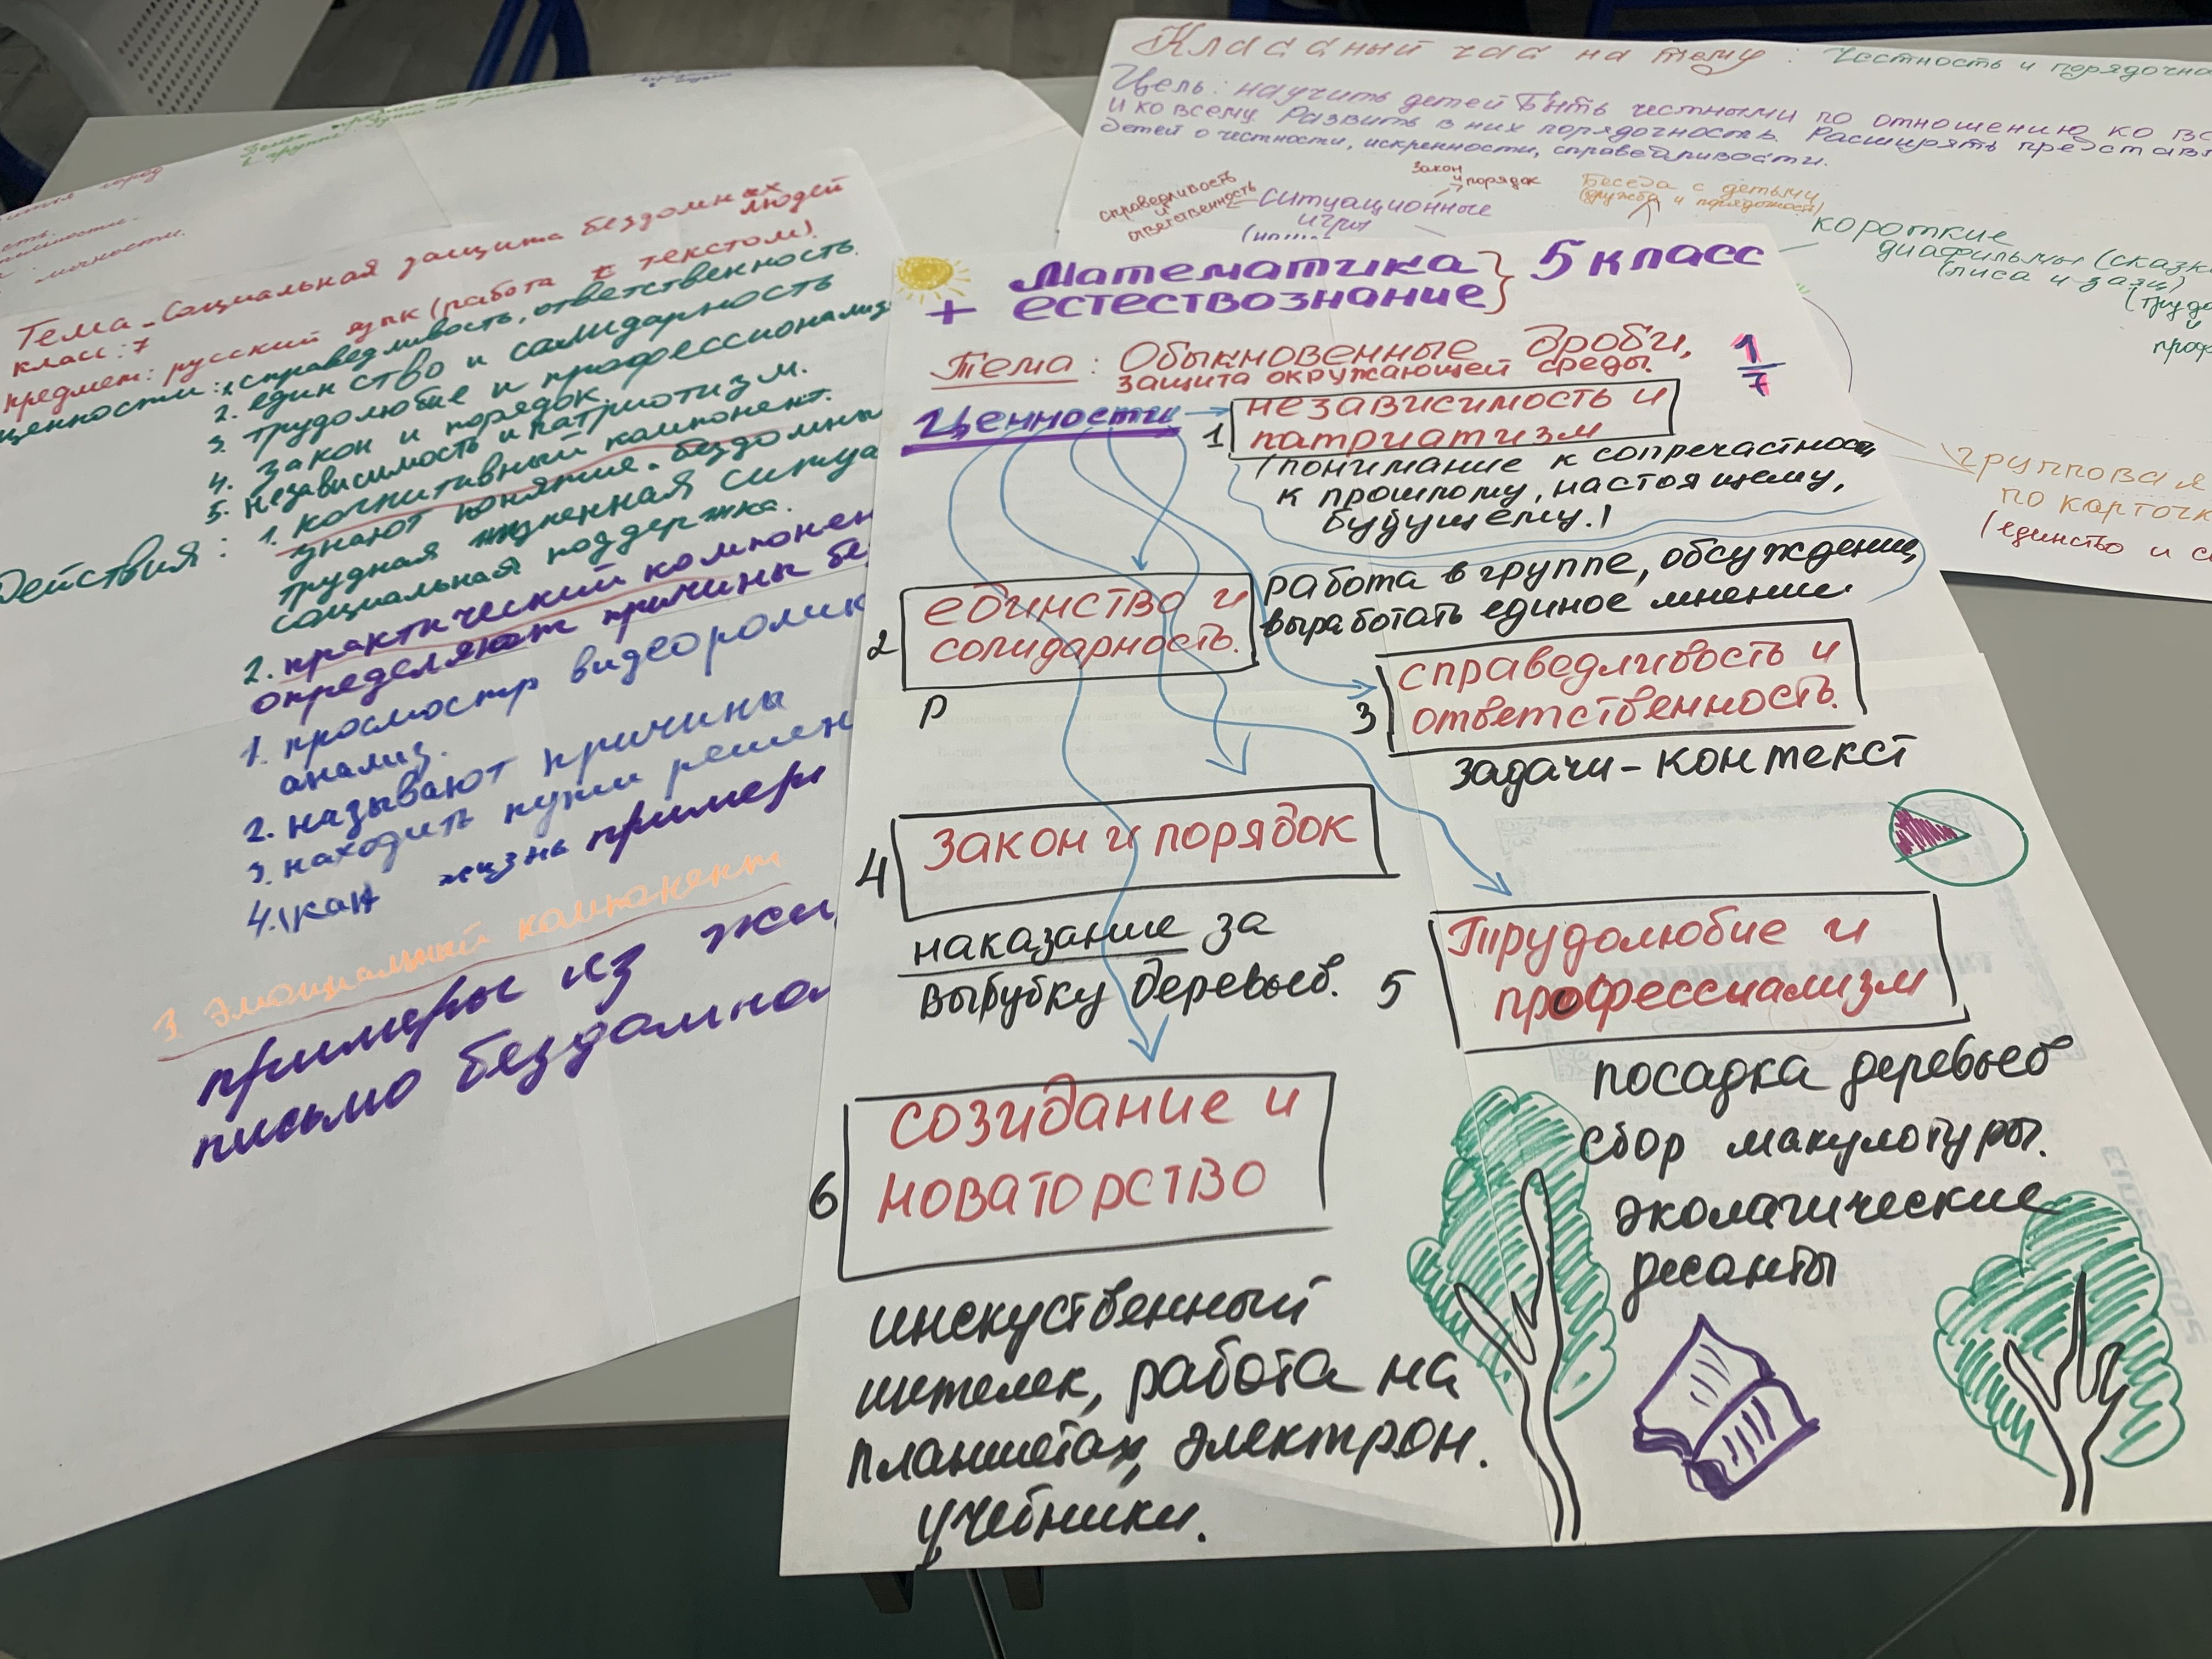 Тема - Социальная защита бездомных
людей
класс: 7
предмет: русский язык (работа с текстом).
ценности: 1. справедливость, ответственность.
2. единство и солидарность
3. трудолюбие и профессионализ
4. Закон и порядок.
5. независимость и патриотизм.
Действия: 1. когнитивный компонент.
знают понятие - бездомны
трудная жизненная ситуа
социальная поддержка.
2. практический компонен
определяют причины бе
1. просмостр видеоролик
анализ.
2. называют причины
3. находить пути решен
4. жизнь примеры
3. Эмоциальный компонент
примеры из жи
письмо бездомно
Классный час на тему: Честность и порядочно
Цель: научить детей быть честными по отношению ко вс
и ко всему. Развить в них порядочность. Расширять представл
детей о честности, искренности, справедливости.
справедливость
и
ответственность
ситуационные
игры
закон
и порядок
Беседа с детьми
(дружба и порядочность)
короткие
диафильмы (сказк
(лиса и заяц)
(трудо
и
проф
групповая
по карточк
(единство и с
Математика } 5 класс
+ естествознание
Тема: Обыкновенные дроби,
защита окружающей среды.
1/7
Ценности
1 независимость и
патриатизм
(понимание к сопречастност
к прошлому, настоящему,
будущему.)
2 единство и
солидарность.
р
работа в группе, обсуждение,
выработать единое мнение.
3 справедливость и
ответственность.
задачи-контекст
4 Закон и порядок
наказание за
вырубку деревьев.
5 Трудолюбие и
профессиализм
посадка деревьев
сбор макулотуры.
экологические
десанты
6 созидание и
новаторство
инскуственный
интелек, работа на
планшетах, электрон.
учебники.